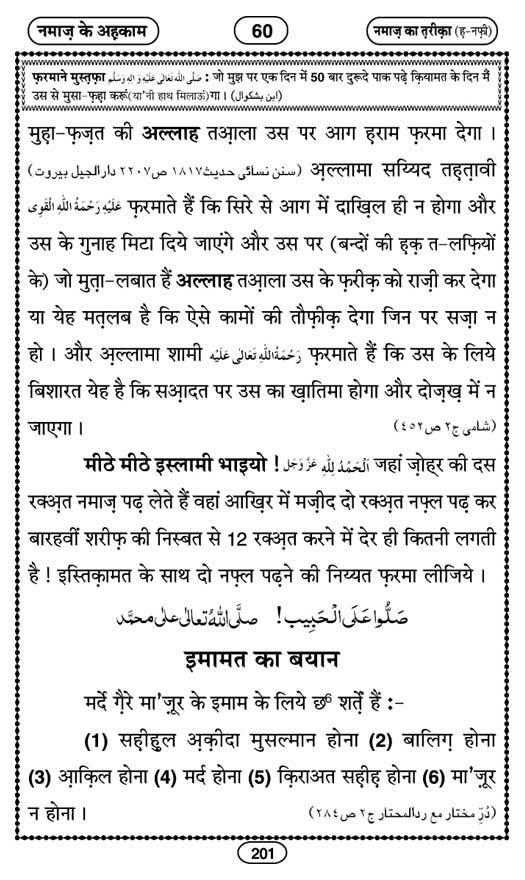 नमाज़ के अह़काम
60
नमाज़ का त़रीक़ा (ह़-नफ़ी)
फ़रमाने मुस्त़फ़ा صَلَّى اللهُ تَعَالٰى عَلَيْهِ وَاٰلِهٖ وَسَلَّم : जो मुझ पर एक दिन में 50 बार दुरूदे पाक पढ़े क़ियामत के दिन मैं
उस से मुसा-फ़ह़ा करूं(या'नी हाथ मिलाऊं)गा। (ابن بشكوال)
मुह़ा-फ़ज़त की अल्लाह तआ़ला उस पर आग ह़राम फ़रमा देगा ।
(سنن نسائی حدیث ۱۸۱۷ ص ۲۲۰۷ دارالجیل بیروت) अ़ल्लामा सय्यिद त़ह़त़ावी
عَلَيْهِ رَحْمَةُ اللهِ الْقَوِى फ़रमाते हैं कि सिरे से आग में दाख़िल ही न होगा और
उस के गुनाह मिटा दिये जाएंगे और उस पर (बन्दों की ह़क़ त-लफ़ियों
के) जो मुत़ा-लबात हैं अल्लाह तआ़ला उस के फ़रीक़ को राज़ी कर देगा
या येह मत़लब है कि ऐसे कामों की तौफ़ीक़ देगा जिन पर सज़ा न
हो । और अ़ल्लामा शामी رَحْمَةُ اللهِ تَعَالٰى عَلَيْه फ़रमाते हैं कि उस के लिये
बिशारत येह है कि सआ़दत पर उस का ख़ातिमा होगा और दोज़ख़ में न
जाएगा । (شامی ج۲ ص ٤٥٢)
मीठे मीठे इस्लामी भाइयो ! اَلْحَمْدُ لِلّٰهِ عَزَّوَجَل जहां ज़ोह्‌र की दस
रक्अ़त नमाज़ पढ़ लेते हैं वहां आख़िर में मज़ीद दो रक्अ़त नफ़्ल पढ़ कर
बारहवीं शरीफ़ की निस्बत से 12 रक्अ़त करने में देर ही कितनी लगती
है ! इस्तिक़ामत के साथ दो नफ़्ल पढ़ने की निय्यत फ़रमा लीजिये ।
صَلُّوا عَلَى الْحَبِيب! صلَّى اللهُ تعالٰى على محمَّد
इमामत का बयान
मर्दे ग़ैरे मा'ज़ूर के इमाम के लिये छ⁶ शर्त़ें हैं :-
(1) सह़ीह़ुल अ़क़ीदा मुसल्मान होना (2) बालिग़ होना
(3) आ़क़िल होना (4) मर्द होना (5) क़िराअत सह़ीह़ होना (6) मा'ज़ूर
न होना । (دُرِّ مختار مع ردالمحتار ج۲ ص ۲۸٤)
201